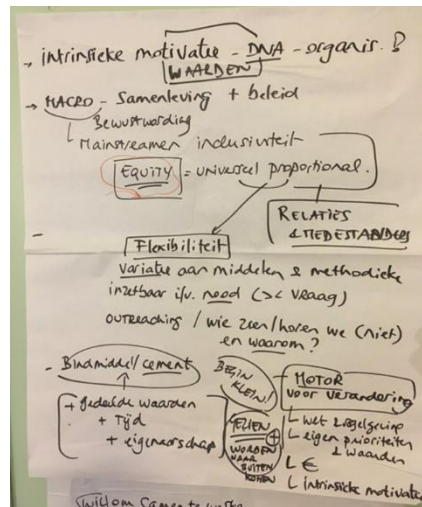 → intrinsieke motivatie - DNA - organis. ?
WAARDEN
→ MACRO - Samenleving + beleid
Bewustwording
Mainstreamen inclusiviteit
EQUITY = universeel proportional.
RELATIES
& MEDESTANDERS
-
Flexibiliteit
Variatie aan middelen & methodieke
inzetbaar i/v. nood (>< vraag)
OUTREACHING / wie zien/horen we (niet)
en waarom?
- Bindmiddel/cement
+ gedeelde waarden
+ Tijd
+ eigenaarschap
BEGIN
KLEIN!
WORDEN
NAAR
BUITEN
KOMEN
- MOTOR
voor verandering
wet & regelgeving
eigen prioriteiten
& waarden
€
intrinsieke motivatie